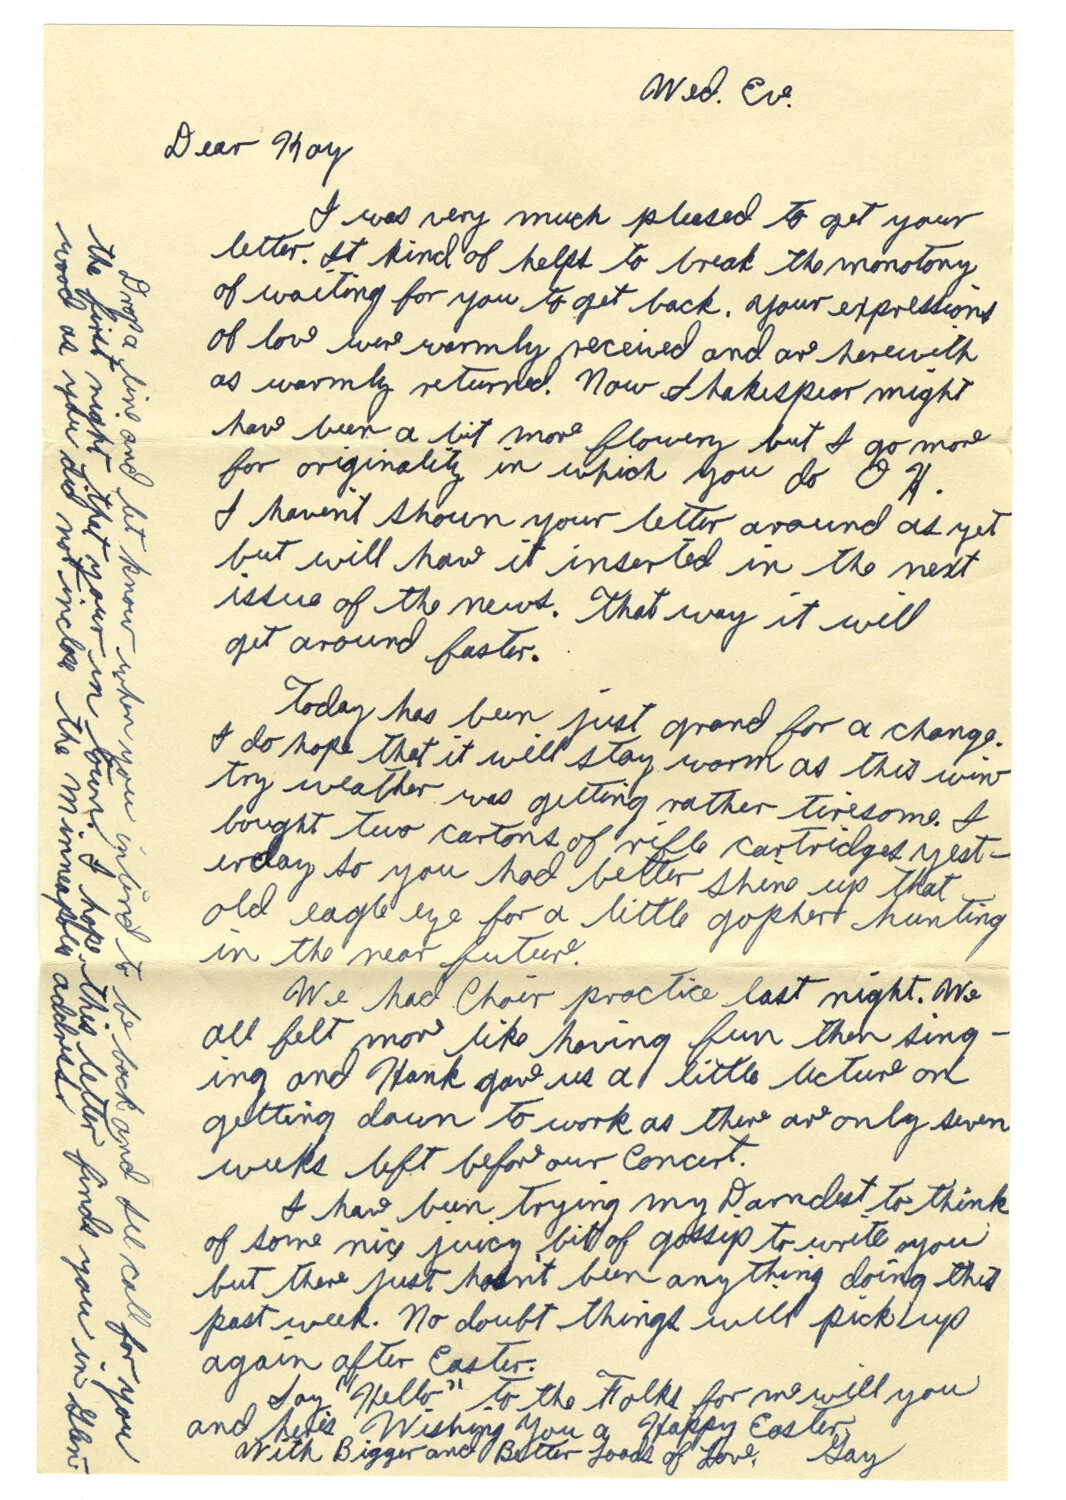 Wed. Eve.
Dear Kay
I was very much pleased to get your
letter. It kind of helps to break the monotony
of waiting for you to get back. Your expressions
of love were warmly received and are herewith
as warmly returned. Now Shakespear might
have been a bit more flowery but I go more
for originality in which you do O K.
I haven't shown your letter around as yet
but will have it inserted in the next
issue of the news. That way it will
get around faster.
Today has been just grand for a change.
I do hope that it will stay warm as this win
try weather was getting rather tiresome. I
bought two cartons of rifle cartridges yest-
erday so you had better shine up that
old eagle eye for a little gopher hunting
in the near future.
We had Choir practice last night. We
all felt more like having fun then sing-
ing and Hank gave us a little lecture on
getting down to work as there are only seven
weeks left before our Concert.
I have been trying my Darndest to think
of some nice juicy bit of gossip to write you
but there just hasn't been anything doing this
past week. No doubt things will pick up
again after Easter.
Say "Hello" to the Folks for me will you
and here's Wishing You a Happy Easter
With Bigger and Better Loads of Love. Gay
Drop a line and let know when you intend to be back and I'll call for you
the first night that your in town. I hope this letter finds you in Glen-
wood as you did not inclose the Minneapolis address